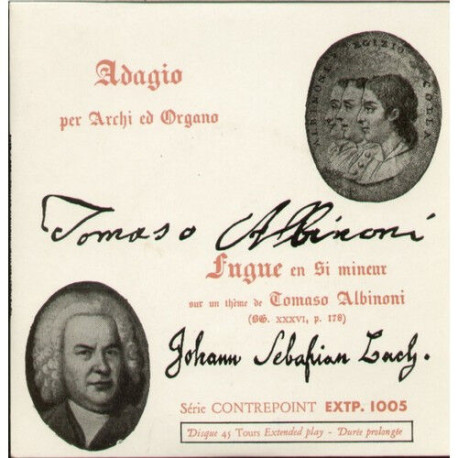 Adagio
per Archi ed Organo
ALBINONI EGIZIO COLLA
Tomaso Albinoni
Fugue en Si mineur
sur un thème de Tomaso Albinoni
(BG. XXXVI, p. 178)
Johann Sebastian Bach.
Série CONTREPOINT EXTP. 1005
Disque 45 Tours Extended play - Durée prolongée